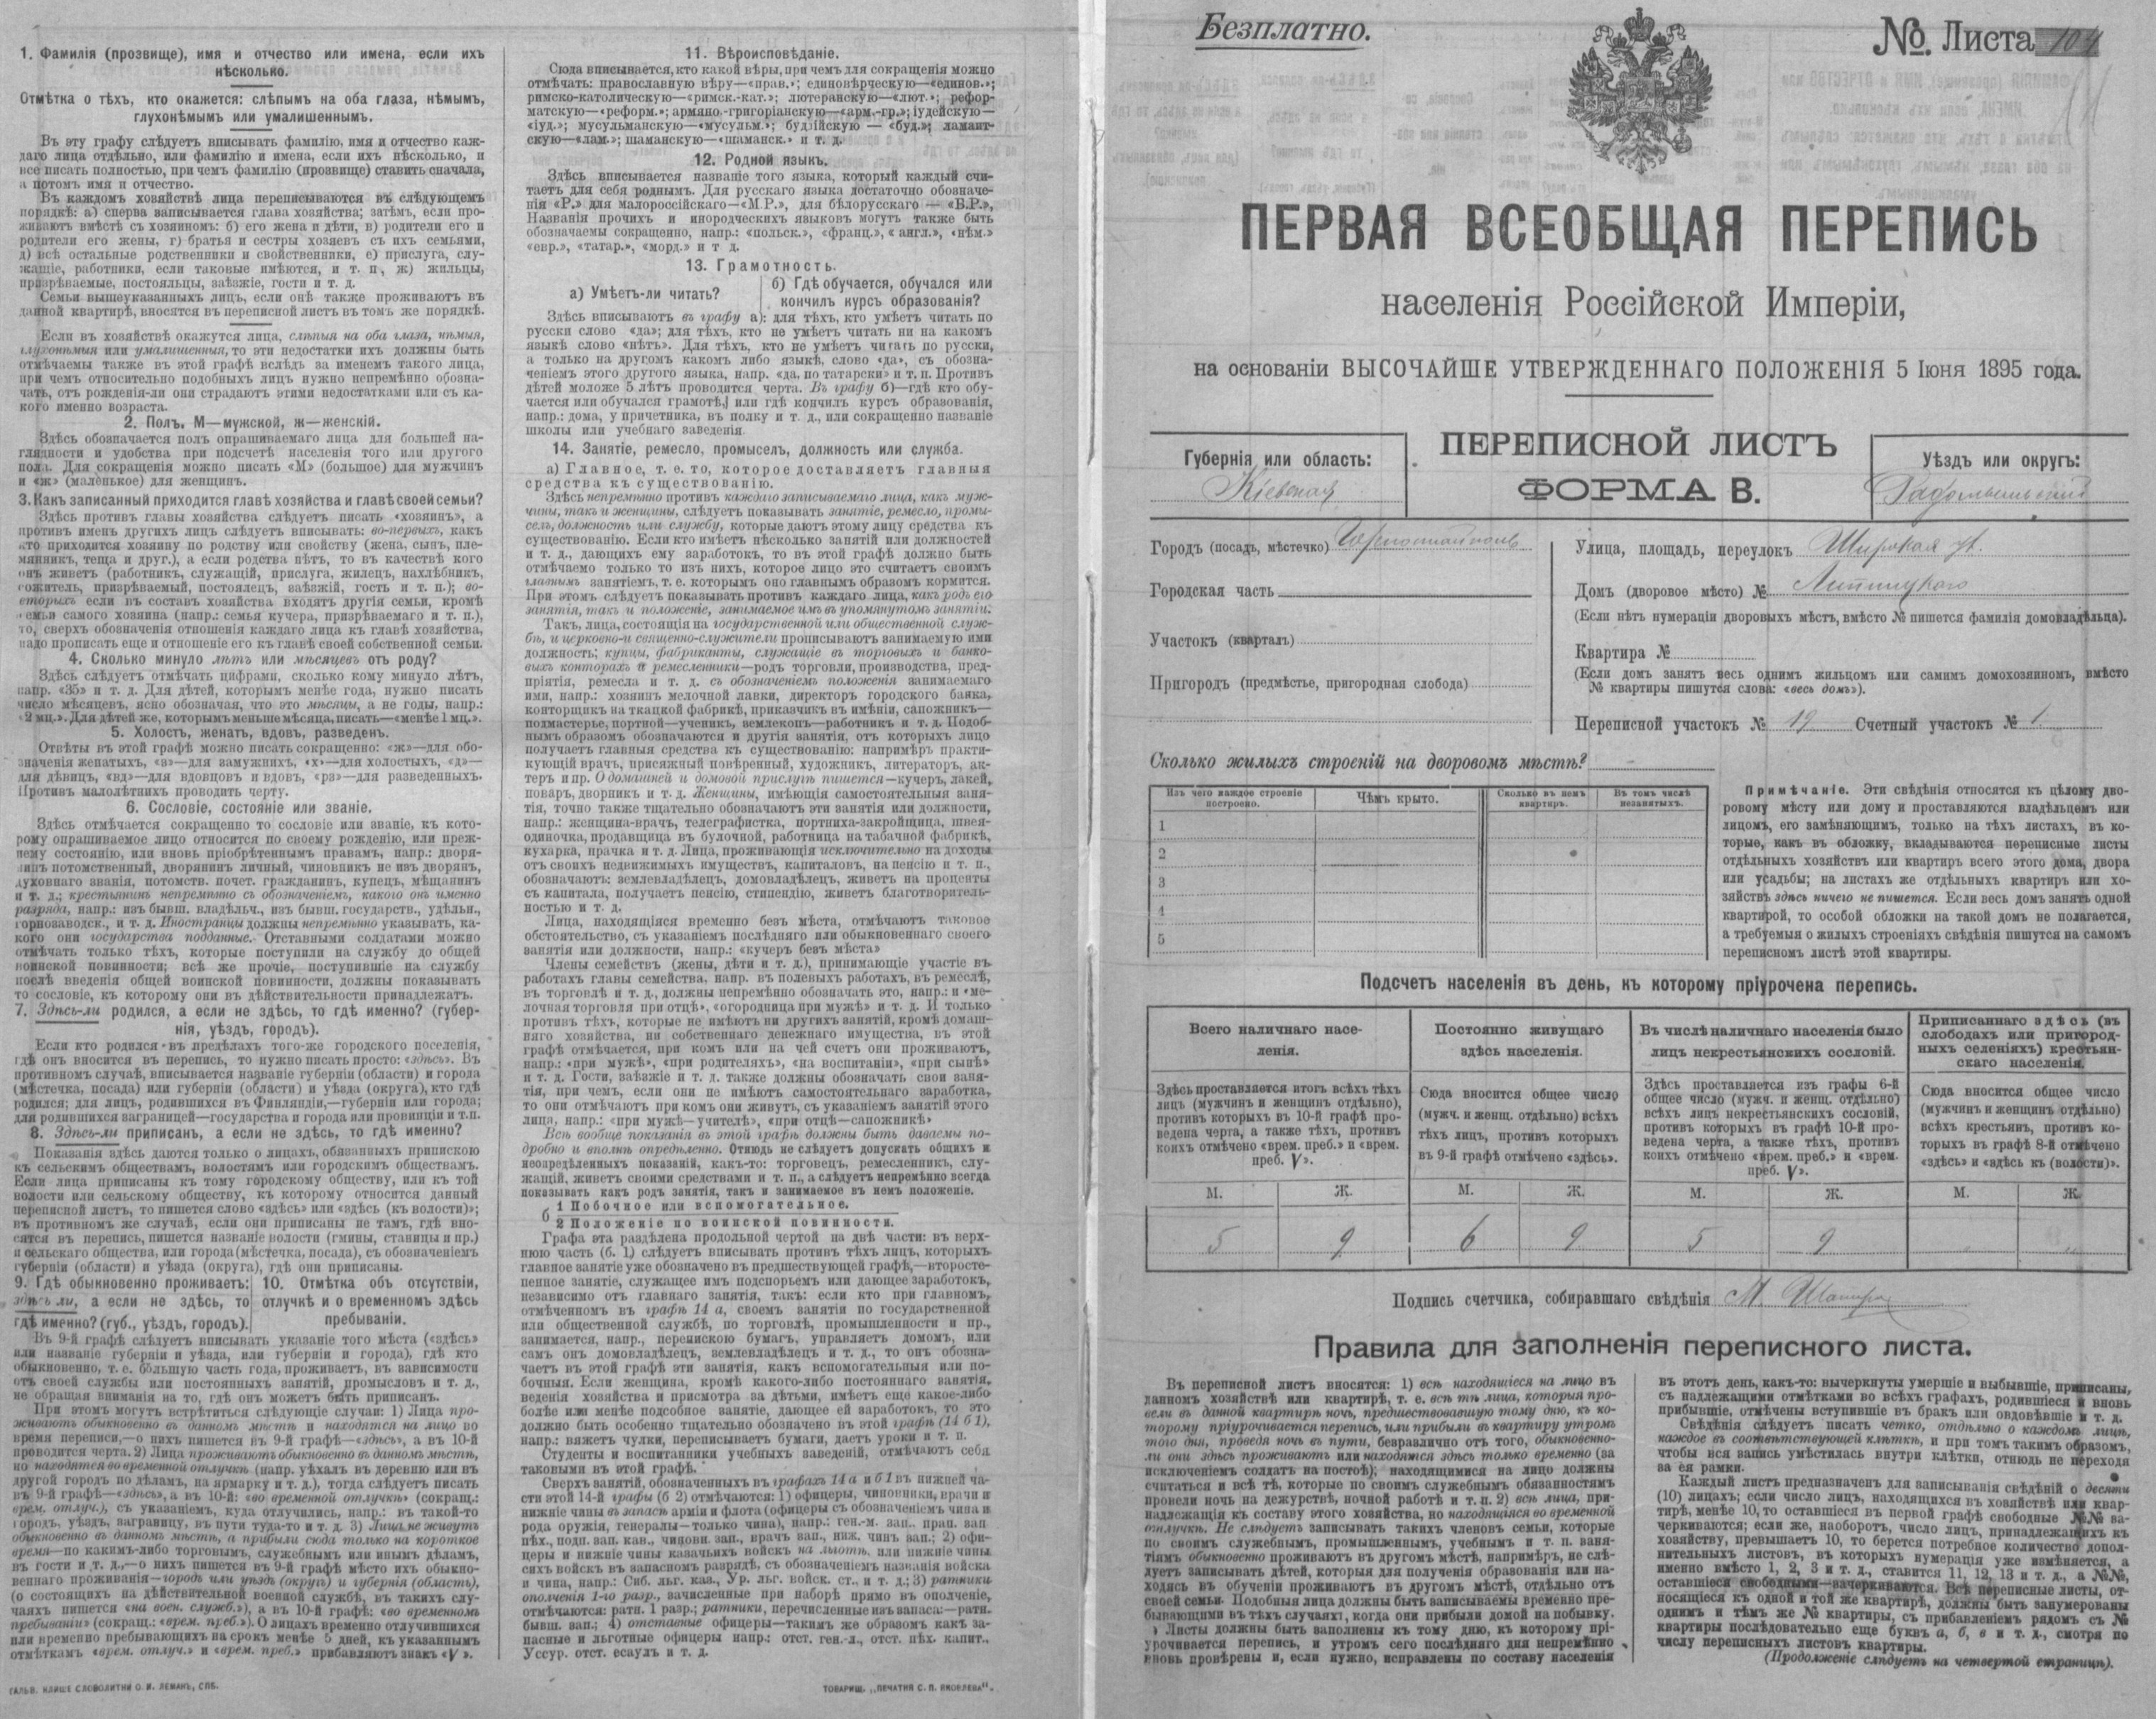 1. Фамилія (прозвище), имя и отчество или имена, если ихъ
нѣсколько.
Отмѣтка о тѣхъ, кто окажется: слѣпымъ на оба глаза, нѣмымъ,
глухонѣмымъ или умалишеннымъ.
Въ эту графу слѣдуетъ вписывать фамилію, имя и отчество каж-
даго лица отдѣльно, или фамилію и имена, если ихъ нѣсколько, и
все писать полностью, при чемъ фамилію (прозвище) ставить сначала,
а потомъ имя и отчество.
Въ каждомъ хозяйствѣ лица переписываются въ слѣдующемъ
порядкѣ: а) сперва записывается глава хозяйства; затѣмъ, если про-
живаютъ вмѣстѣ съ хозяиномъ: б) его жена и дѣти, в) родители его и
родители его жены, г) братья и сестры хозяевъ съ ихъ семьями,
д) всѣ остальные родственники и свойственники, е) прислуга, слу-
жащіе, работники, если таковые имѣются, и т. п., ж) жильцы,
призрѣваемые, постояльцы, заѣзжіе, гости и т. д.
Семьи вышеуказанныхъ лицъ, если онѣ также проживаютъ въ
данной квартирѣ, вносятся въ переписной листъ въ томъ же порядкѣ.
Если въ хозяйствѣ окажутся лица, слѣпыя на оба глаза, нѣмыя,
глухонѣмыя или умалишенныя, то эти недостатки ихъ должны быть
отмѣчаемы также въ этой графѣ вслѣдъ за именемъ такого лица,
при чемъ относительно подобныхъ лицъ нужно непремѣнно обозна-
чать, отъ рожденія-ли они страдаютъ этими недостатками или съ ка-
кого именно возраста.
2. Полъ, М—мужской, ж—женскій.
Здѣсь обозначается полъ опрашиваемаго лица для большей на-
глядности и удобства при подсчетѣ населенія того или другого
пола. Для сокращенія можно писать «М» (большое) для мужчинъ
и «ж» (маленькое) для женщинъ.
3. Какъ записанный приходится главѣ хозяйства и главѣ своей семьи?
Здѣсь противъ главы хозяйства слѣдуетъ писать «хозяинъ», а
противъ именъ другихъ лицъ слѣдуетъ вписывать: во-первыхъ, какъ
кто приходится хозяину по родству или свойству (жена, сынъ, пле-
мянникъ, теща и друг.), а если родства нѣтъ, то въ качествѣ кого
онъ живетъ (работникъ, служащій, прислуга, жилецъ, нахлѣбникъ,
сожитель, призрѣваемый, постоялецъ, заѣзжій, гость и т. п.); во-
вторыхъ если въ составъ хозяйства входятъ другія семьи, кромѣ
семьи самого хозяина (напр.: семья кучера, призрѣваемаго и т. п.),
то, сверхъ обозначенія отношенія каждаго лица къ главѣ хозяйства,
надо прописать еще и отношеніе его къ главѣ своей собственной семьи.
4. Сколько минуло лѣтъ или мѣсяцевъ отъ роду?
Здѣсь слѣдуетъ отмѣчать цифрами, сколько кому минуло лѣтъ,
напр. «35» и т. д. Для дѣтей, которымъ менѣе года, нужно писать
число мѣсяцевъ, ясно обозначая, что это мѣсяцы, а не годы, напр.:
«2 мц.». Для дѣтей же, которымъ меньше мѣсяца, писать—«менѣе 1 мц.».
5. Холостъ, женатъ, вдовъ, разведенъ.
Отвѣты въ этой графѣ можно писать сокращенно: «ж»—для обо-
значенія женатыхъ, «з»—для замужнихъ, «х»—для холостыхъ, «д»—
для дѣвицъ, «вд»—для вдовцовъ и вдовъ, «рз»—для разведенныхъ.
Противъ малолѣтнихъ проводить черту.
6. Сословіе, состояніе или званіе.
Здѣсь отмѣчается сокращенно то сословіе или званіе, къ кото-
рому опрашиваемое лицо относится по своему рожденію, или преж-
нему состоянію, или вновь пріобрѣтеннымъ правамъ, напр.: дворя-
нинъ потомственный, дворянинъ личный, чиновникъ не изъ дворянъ,
духовнаго званія, потомств. почет. гражданинъ, купецъ, мѣщанинъ
и т. д.; крестьянинъ непремѣнно съ обозначеніемъ, какого онъ именно
разряда, напр.: изъ бывш. владѣльч., изъ бывш. государств., удѣльн.,
горнозаводск., и т. д. Иностранцы должны непремѣнно указывать, ка-
кого они государства подданные. Отставными солдатами можно
отмѣчать только тѣхъ, которые поступили на службу до общей
воинской повинности; всѣ же прочіе, поступившіе на службу
послѣ введенія общей воинской повинности, должны показывать
то сословіе, къ которому они въ дѣйствительности принадлежатъ.
7. Здѣсь-ли родился, а если не здѣсь, то гдѣ именно? (губер-
нія, уѣздъ, городъ).
Если кто родился въ предѣлахъ того-же городского поселенія,
гдѣ онъ вносится въ перепись, то нужно писать просто: «здѣсь». Въ
противномъ случаѣ, вписывается названіе губерніи (области) и города
(мѣстечка, посада) или губерніи (области) и уѣзда (округа), кто гдѣ
родился; для лицъ, родившихся въ Финляндіи,—губерніи или города;
для родившихся заграницей—государства и города или провинціи и т.п.
8. Здѣсь-ли приписанъ, а если не здѣсь, то гдѣ именно?
Показанія здѣсь даются только о лицахъ, обязанныхъ припискою
къ сельскимъ обществамъ, волостямъ или городскимъ обществамъ.
Если лица приписаны къ тому городскому обществу, или къ той
волости или сельскому обществу, къ которому относится данный
переписной листъ, то пишется слово «здѣсь» или «здѣсь (къ волости)»;
въ противномъ же случаѣ, если они приписаны не тамъ, гдѣ вно-
сятся въ перепись, пишется названіе волости (гмины, станицы и пр.)
и сельскаго общества, или города (мѣстечка, посада), съ обозначеніемъ
губерніи (области) и уѣзда (округа), гдѣ они приписаны.
9. Гдѣ обыкновенно проживаетъ:
здѣсь ли, а если не здѣсь, то
гдѣ именно? (губ., уѣздъ, городъ).
10. Отмѣтка объ отсутствіи,
отлучкѣ и о временномъ здѣсь
пребываніи.
Въ 9-й графѣ слѣдуетъ вписывать указаніе того мѣста («здѣсь»
или названіе губерніи и уѣзда, или губерніи и города), гдѣ кто
обыкновенно, т. е. бо́льшую часть года, проживаетъ, въ зависимости
отъ своей службы или постоянныхъ занятій, промысловъ и т. д.,
не обращая вниманія на то, гдѣ онъ можетъ быть приписанъ.
При этомъ могутъ встрѣтиться слѣдующіе случаи: 1) Лица про-
живаютъ обыкновенно въ данномъ мѣстѣ и находятся на лицо во
время переписи,—о нихъ пишется въ 9-й графѣ—«здѣсь», а въ 10-й
проводится черта. 2) Лица проживаютъ обыкновенно въ данномъ мѣстѣ,
но находятся во временной отлучкѣ (напр. уѣхалъ въ деревню или въ
другой городъ по дѣламъ, на ярмарку и т. д.), тогда слѣдуетъ писать
въ 9-й графѣ—«здѣсь», а въ 10-й: «во временной отлучкѣ» (сокращ.:
врем. отлуч.), съ указаніемъ, куда отлучились, напр.: въ такой-то
городъ, уѣздъ, заграницу, въ пути туда-то и т. д. 3) Лица не живутъ
обыкновенно въ данномъ мѣстѣ, а прибыли сюда только на короткое
время—по какимъ-либо торговымъ, служебнымъ или инымъ дѣламъ,
въ гости и т. д.,—о нихъ пишется въ 9-й графѣ мѣсто ихъ обыкно-
веннаго проживанія—городъ или уѣздъ (округъ) и губернія (область),
(о состоящихъ на дѣйствительной военной службѣ, въ такихъ слу-
чаяхъ пишется «на воен. служб.»), а въ 10-й графѣ: «во временномъ
пребываніи» (сокращ.: «врем. преб.»). О лицахъ временно отлучившихся
или временно пребывающихъ на срокъ менѣе 5 дней, къ указаннымъ
отмѣткамъ «врем. отлуч.» и «врем. преб.» прибавляютъ знакъ «V».
ГАЛЬВ. КЛИШЕ СЛОВОЛИТНИ О. И. ЛЕМАНЪ, СПБ.
11. Вѣроисповѣданіе.
Сюда вписывается, кто какой вѣры, при чемъ для сокращенія можно
отмѣчать: православную вѣру—«прав.»; единовѣрческую—«единов.»;
римско-католическую—«римск.-кат.»; лютеранскую—«лют.»; рефор-
матскую—«реформ.»; армяно-григоріанскую—«арм.-гр.»; іудейскую—
«іуд.»; мусульманскую—«мусульм.»; буддійскую — «буд.»; ламаит-
скую—«лам.»; шаманскую—«шаманск.» и т. д.
12. Родной языкъ.
Здѣсь вписывается названіе того языка, который каждый счи-
таетъ для себя роднымъ. Для русскаго языка достаточно обозначе-
нія «Р.» для малороссійскаго—«М.Р.», для бѣлорусскаго — «Б.Р.»,
Названія прочихъ и инородческихъ языковъ могутъ также быть
обозначаемы сокращенно, напр.: «польск.», «франц.», «англ.», «нѣм.»
«евр.», «татар.», «морд.» и т д.
13. Грамотность.
а) Умѣетъ-ли читать?
б) Гдѣ обучается, обучался или
кончилъ курсъ образованія?
Здѣсь вписываютъ въ графу а): для тѣхъ, кто умѣетъ читать по
русски слово «да»; для тѣхъ, кто не умѣетъ читать ни на какомъ
языкѣ слово «нѣтъ». Для тѣхъ, кто не умѣетъ читать по русски,
а только на другомъ какомъ либо языкѣ, слово «да», съ обозна-
ченіемъ этого другого языка, напр. «да, по татарски» и т. п. Противъ
дѣтей моложе 5 лѣтъ проводится черта. Въ графу б)—гдѣ кто обу-
чается или обучался грамотѣ, или гдѣ кончилъ курсъ образованія,
напр.: дома, у причетника, въ полку и т. д., или сокращенно названіе
школы или учебнаго заведенія.
14. Занятіе, ремесло, промыселъ, должность или служба.
а) Главное, т. е. то, которое доставляетъ главныя
средства къ существованію.
Здѣсь непремѣнно противъ каждаго записываемаго лица, какъ муж-
чины, такъ и женщины, слѣдуетъ показывать занятіе, ремесло, промы-
селъ, должность или службу, которые даютъ этому лицу средства къ
существованію. Если кто имѣетъ нѣсколько занятій или должностей
и т. д., дающихъ ему заработокъ, то въ этой графѣ должно быть
отмѣчаемо только то изъ нихъ, которое лицо это считаетъ своимъ
главнымъ занятіемъ, т. е. которымъ оно главнымъ образомъ кормится.
При этомъ слѣдуетъ показывать противъ каждаго лица, какъ родъ его
занятія, такъ и положеніе, занимаемое имъ въ упомянутомъ занятіи.
Такъ, лица, состоящія на государственной или общественной служ-
бѣ, и церковно-и священно-служители прописываютъ занимаемую ими
должность; купцы, фабриканты, служащіе въ торговыхъ и банко-
выхъ конторахъ и ремесленники—родъ торговли, производства, пред-
пріятія, ремесла и т. д. съ обозначеніемъ положенія занимаемаго
ими, напр.: хозяинъ мелочной лавки, директоръ городского банка,
конторщикъ на ткацкой фабрикѣ, приказчикъ въ имѣніи, сапожникъ—
подмастерье, портной—ученикъ, землекопъ—работникъ и т. д. Подоб-
нымъ образомъ обозначаются и другія занятія, отъ которыхъ лицо
получаетъ главныя средства къ существованію: напримѣръ практи-
кующій врачъ, присяжный повѣренный, художникъ, литераторъ, ак-
теръ и пр. О домашней и домовой прислугѣ пишется—кучеръ, лакей,
поваръ, дворникъ и т. д. Женщины, имѣющія самостоятельныя заня-
тія, точно также тщательно обозначаютъ эти занятія или должности,
напр.: женщина-врачъ, телеграфистка, портниха-закройщица, швея-
одиночка, продавщица въ булочной, работница на табачной фабрикѣ,
кухарка, прачка и т. д. Лица, проживающія исключительно на доходы
отъ своихъ недвижимыхъ имуществъ, капиталовъ, на пенсію и т. п.,
обозначаютъ: землевладѣлецъ, домовладѣлецъ, живетъ на проценты
съ капитала, получаетъ пенсію, стипендію, живетъ благотворитель-
ностью и т. д.
Лица, находящіяся временно безъ мѣста, отмѣчаютъ таковое
обстоятельство, съ указаніемъ послѣдняго или обыкновеннаго своего
занятія или должности, напр.: «кучеръ безъ мѣста»
Члены семействъ (жены, дѣти и т. д.), принимающіе участіе въ
работахъ главы семейства, напр. въ полевыхъ работахъ, въ ремеслѣ,
въ торговлѣ и т. д., должны непремѣнно обозначать это, напр.: и «ме-
лочная торговля при отцѣ», «огородница при мужѣ» и т. д. И только
противъ тѣхъ, которые не имѣютъ ни другихъ занятій, кромѣ домаш-
няго хозяйства, ни собственнаго денежнаго имущества, въ этой
графѣ отмѣчается, при комъ или на чей счетъ они проживаютъ,
напр.: «при мужѣ», «при родителяхъ», «на воспитаніи», «при сынѣ»
и т. д. Гости, заѣзжіе и т. д. также должны обозначать свои заня-
тія, при чемъ, если они не имѣютъ самостоятельнаго заработка,
то они отмѣчаютъ при комъ они живутъ, съ указаніемъ занятій этого
лица, напр.: «при мужѣ—учителѣ», «при отцѣ—сапожникѣ»
Всѣ вообще показанія въ этой графѣ должны быть даваемы по-
дробно и вполнѣ опредѣленно. Отнюдь не слѣдуетъ допускать общихъ и
неопредѣленныхъ показаній, какъ-то: торговецъ, ремесленникъ, слу-
жащій, живетъ своими средствами и т. п., а слѣдуетъ непремѣнно всегда
показывать какъ родъ занятія, такъ и занимаемое въ немъ положеніе.
б 1 Побочное или вспомогательное.
2 Положеніе по воинской повинности.
Графа эта раздѣлена продольной чертой на двѣ части: въ верх-
нюю часть (б. 1) слѣдуетъ вписывать противъ тѣхъ лицъ, которыхъ
главное занятіе уже обозначено въ предшествующей графѣ,—второсте-
пенное занятіе, служащее имъ подспорьемъ или дающее заработокъ,
независимо отъ главнаго занятія, такъ: если кто при главномъ,
отмѣченномъ въ графѣ 14 а, своемъ занятіи по государственной
или общественной службѣ, по торговлѣ, промышленности и пр.,
занимается, напр., перепискою бумагъ, управляетъ домомъ, или
самъ онъ домовладѣлецъ, землевладѣлецъ и т. д., то онъ обозна-
чаетъ въ этой графѣ эти занятія, какъ вспомогательныя или по-
бочныя. Если женщина, кромѣ какого-либо постояннаго занятія,
веденія хозяйства и присмотра за дѣтьми, имѣетъ еще какое-либо
болѣе или менѣе подсобное занятіе, дающее ей заработокъ, то это
должно быть особенно тщательно обозначено въ этой графѣ (14 б 1),
напр.: вяжетъ чулки, переписываетъ бумаги, даетъ уроки и т. п.
Студенты и воспитанники учебныхъ заведеній, отмѣчаютъ себя
таковыми въ этой графѣ.
Сверхъ занятій, обозначенныхъ въ графахъ 14 а и б 1 въ нижней ча-
сти этой 14-й графы (б 2) отмѣчаются: 1) офицеры, чиновники, врачи и
нижніе чины въ запасѣ арміи и флота (офицеры съ обозначеніемъ чина и
рода оружія, генералы—только чина), напр.: ген.-м. зап., прап. зап.
пѣх., подп. зап. кав., чиновн. зап., врачъ зап., ниж. чинъ зап.; 2) офи-
церы и нижніе чины казачьихъ войскъ на льготѣ, или нижніе чины
сихъ войскъ въ запасномъ разрядѣ, съ обозначеніемъ названія войска
и чина, напр.: Сиб. льг. каз., Ур. льг. войск. ст., и т. д.; 3) ратники
ополченія 1-го разр., зачисленные при наборѣ прямо въ ополченіе,
отмѣчаются: ратн. 1 разр.; ратники, перечисленные изъ запаса:—ратн.
бывш. зап.; 4) отставные офицеры—такимъ же образомъ какъ за-
пасные и льготные офицеры напр.: отст. ген.-л., отст. пѣх. капит.,
Уссур. отст. есаулъ и т. д.
ТОВАРИЩ. „ПЕЧАТНЯ С. П. ЯКОВЛЕВА".
Безплатно.
№ Листа 104
ПЕРВАЯ ВСЕОБЩАЯ ПЕРЕПИСЬ
населенія Россійской Имперіи,
на основаніи ВЫСОЧАЙШЕ УТВЕРЖДЕННАГО ПОЛОЖЕНІЯ 5 Іюня 1895 года.
Губернія или область:
Кіевская
ПЕРЕПИСНОЙ ЛИСТЪ
ФОРМА В.
Уѣздъ или округъ:
Радомысльскій
Городъ (посадъ, мѣстечко) Горностайполь
Городская часть
Участокъ (кварталъ)
Пригородъ (предмѣстье, пригородная слобода)
Улица, площадь, переулокъ Широкая ул.
Домъ (дворовое мѣсто) №
(Если нѣтъ нумераціи дворовыхъ мѣстъ, вмѣсто № пишется фамилія домовладѣльца).
Квартира №
(Если домъ занятъ весь однимъ жильцомъ или самимъ домохозяиномъ, вмѣсто
№ квартиры пишутся слова: «весь домъ»).
Переписной участокъ № 19 Счетный участокъ № 1
Сколько жилыхъ строеній на дворовомъ мѣстѣ?
Изъ чего каждое строеніе построено.
Чѣмъ крыто.
Сколько въ немъ квартиръ.
Въ томъ числѣ незанятыхъ.
1
2
3
4
5
Примѣчаніе. Эти свѣдѣнія относятся къ цѣлому дво-
ровому мѣсту или дому и проставляются владѣльцемъ или
лицомъ, его замѣняющимъ, только на тѣхъ листахъ, въ ко-
торые, какъ въ обложку, вкладываются переписные листы
отдѣльныхъ хозяйствъ или квартиръ всего этого дома, двора
или усадьбы; на листахъ же отдѣльныхъ квартиръ или хо-
зяйствъ здѣсь ничего не пишется. Если весь домъ занятъ одной
квартирой, то особой обложки на такой домъ не полагается,
а требуемыя о жилыхъ строеніяхъ свѣдѣнія пишутся на самомъ
переписномъ листѣ этой квартиры.
Подсчетъ населенія въ день, къ которому пріурочена перепись.
Всего наличнаго насе-
ленія.
Здѣсь проставляется итогъ всѣхъ тѣхъ
лицъ (мужчинъ и женщинъ отдѣльно),
противъ которыхъ въ 10-й графѣ про-
ведена черта, а также тѣхъ, противъ
коихъ отмѣчено «врем. преб.» и «врем.
преб. V».
Постоянно живущаго
здѣсь населенія.
Сюда вносится общее число
(мужч. и женщ. отдѣльно) всѣхъ
тѣхъ лицъ, противъ которыхъ
въ 9-й графѣ отмѣчено «здѣсь».
Въ числѣ наличнаго населенія было
лицъ некрестьянскихъ сословій.
Здѣсь проставляется изъ графы 6-й
общее число (мужч. и женщ. отдѣльно)
всѣхъ лицъ некрестьянскихъ сословій,
противъ которыхъ въ графѣ 10-й про-
ведена черта, а также тѣхъ, противъ
коихъ отмѣчено «врем. преб.» и «врем.
преб. V».
Приписаннаго здѣсь (въ
слободахъ или пригород-
ныхъ селеніяхъ) крестьян-
скаго населенія.
Сюда вносится общее число
(мужчинъ и женщинъ отдѣльно)
всѣхъ крестьянъ, противъ ко-
торыхъ въ графѣ 8-й отмѣчено
«здѣсь» и «здѣсь къ (волости)».
М. Ж. М. Ж. М. Ж. М. Ж.
5 9 6 9 5 9
Подпись счетчика, собиравшаго свѣдѣнія М. Шапиро
Правила для заполненія переписного листа.
Въ переписной листъ вносятся: 1) всѣ находящіеся на лицо въ
данномъ хозяйствѣ или квартирѣ, т. е. всѣ тѣ лица, которыя про-
вели въ данной квартирѣ ночь, предшествовавшую тому дню, къ ко-
торому пріурочивается перепись, или прибыли въ квартиру утромъ
того дня, проведя ночь въ пути, безразлично отъ того, обыкновенно-
ли они здѣсь проживаютъ или находятся здѣсь только временно (за
исключеніемъ солдатъ на постоѣ); находящимися на лицо должны
считаться и всѣ тѣ, которые по своимъ служебнымъ обязанностямъ
провели ночь на дежурствѣ, ночной работѣ и т. п. 2) всѣ лица, при-
надлежащія къ составу этого хозяйства, но находящіяся во временной
отлучкѣ. Не слѣдуетъ записывать такихъ членовъ семьи, которые
по своимъ служебнымъ, промышленнымъ, учебнымъ и т. п. заня-
тіямъ обыкновенно проживаютъ въ другомъ мѣстѣ, напримѣръ, не слѣ-
дуетъ записывать дѣтей, которыя для полученія образованія или на-
ходясь въ обученіи проживаютъ въ другомъ мѣстѣ, отдѣльно отъ
своей семьи. Подобныя лица должны быть записываемы временно пре-
бывающими въ тѣхъ случаяхъ, когда они прибыли домой на побывку.
Листы должны быть заполнены къ тому дню, къ которому прі-
урочивается перепись, и утромъ сего послѣдняго дня непремѣнно
вновь провѣрены и, если нужно, исправлены по составу населенія
въ этотъ день, какъ-то: вычеркнуты умершіе и выбывшіе, приписаны,
съ надлежащими отмѣтками во всѣхъ графахъ, родившіеся и вновь
прибывшіе, отмѣчены вступившіе въ бракъ или овдовѣвшіе и т. д.
Свѣдѣнія слѣдуетъ писать четко, отдѣльно о каждомъ лицѣ,
каждое въ соотвѣтствующей клѣткѣ, и при томъ такимъ образомъ,
чтобы вся запись умѣстилась внутри клѣтки, отнюдь не переходя
за ея рамки.
Каждый листъ предназначенъ для записыванія свѣдѣній о десяти
(10) лицахъ; если число лицъ, находящихся въ хозяйствѣ или квар-
тирѣ, менѣе 10, то оставшіеся въ первой графѣ свободные №№ за-
черкиваются; если же, наоборотъ, число лицъ, принадлежащихъ къ
хозяйству, превышаетъ 10, то берется потребное количество допол-
нительныхъ листовъ, въ которыхъ нумерація уже измѣняется, а
именно вмѣсто 1, 2, 3 и т. д., ставится 11, 12, 13 и т. д., а №№,
оставшіеся свободными—зачеркиваются. Всѣ переписные листы, от-
носящіеся къ одной и той же квартирѣ, должны быть занумерованы
однимъ и тѣмъ же № квартиры, съ прибавленіемъ рядомъ съ №
квартиры послѣдовательно еще буквъ а, б, в и т. д., смотря по
числу переписныхъ листовъ квартиры.
(Продолженіе слѣдуетъ на четвертой страницѣ).